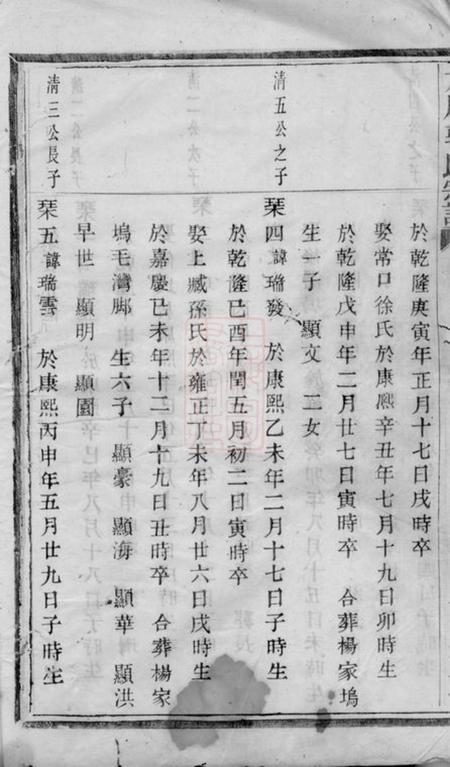 於乾隆庚寅年正月十七日戌時卒
娶常口徐氏於康熙辛丑年七月十九日卯時生
於乾隆戊申年二月廿七日寅時卒 合葬楊家塢
生一子 顯文 二女
清五公之子
琹四諱瑞發 於康熙乙未年二月十七日子時生
於乾隆己酉年閏五月初二日寅時卒
娶上臧孫氏於雍正丁未年八月廿六日戌時生
於嘉慶己未年十二月十九日丑時卒 合葬楊家
塢毛灣脚 生六子 顯豪 顯海 顯華 顯洪
早世 顯明 顯園
清三公長子
琹五諱瑞雲 於康熙丙申年五月廿九日子時生